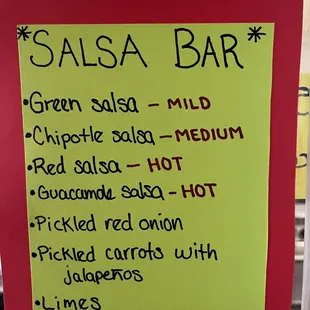 *SALSA BAR*
•Green salsa - MILD
•Chipotle salsa - MEDIUM
•Red salsa - HOT
•Guacamole salsa - HOT
•Pickled red onion
•Pickled carrots with
jalapeños
•Limes